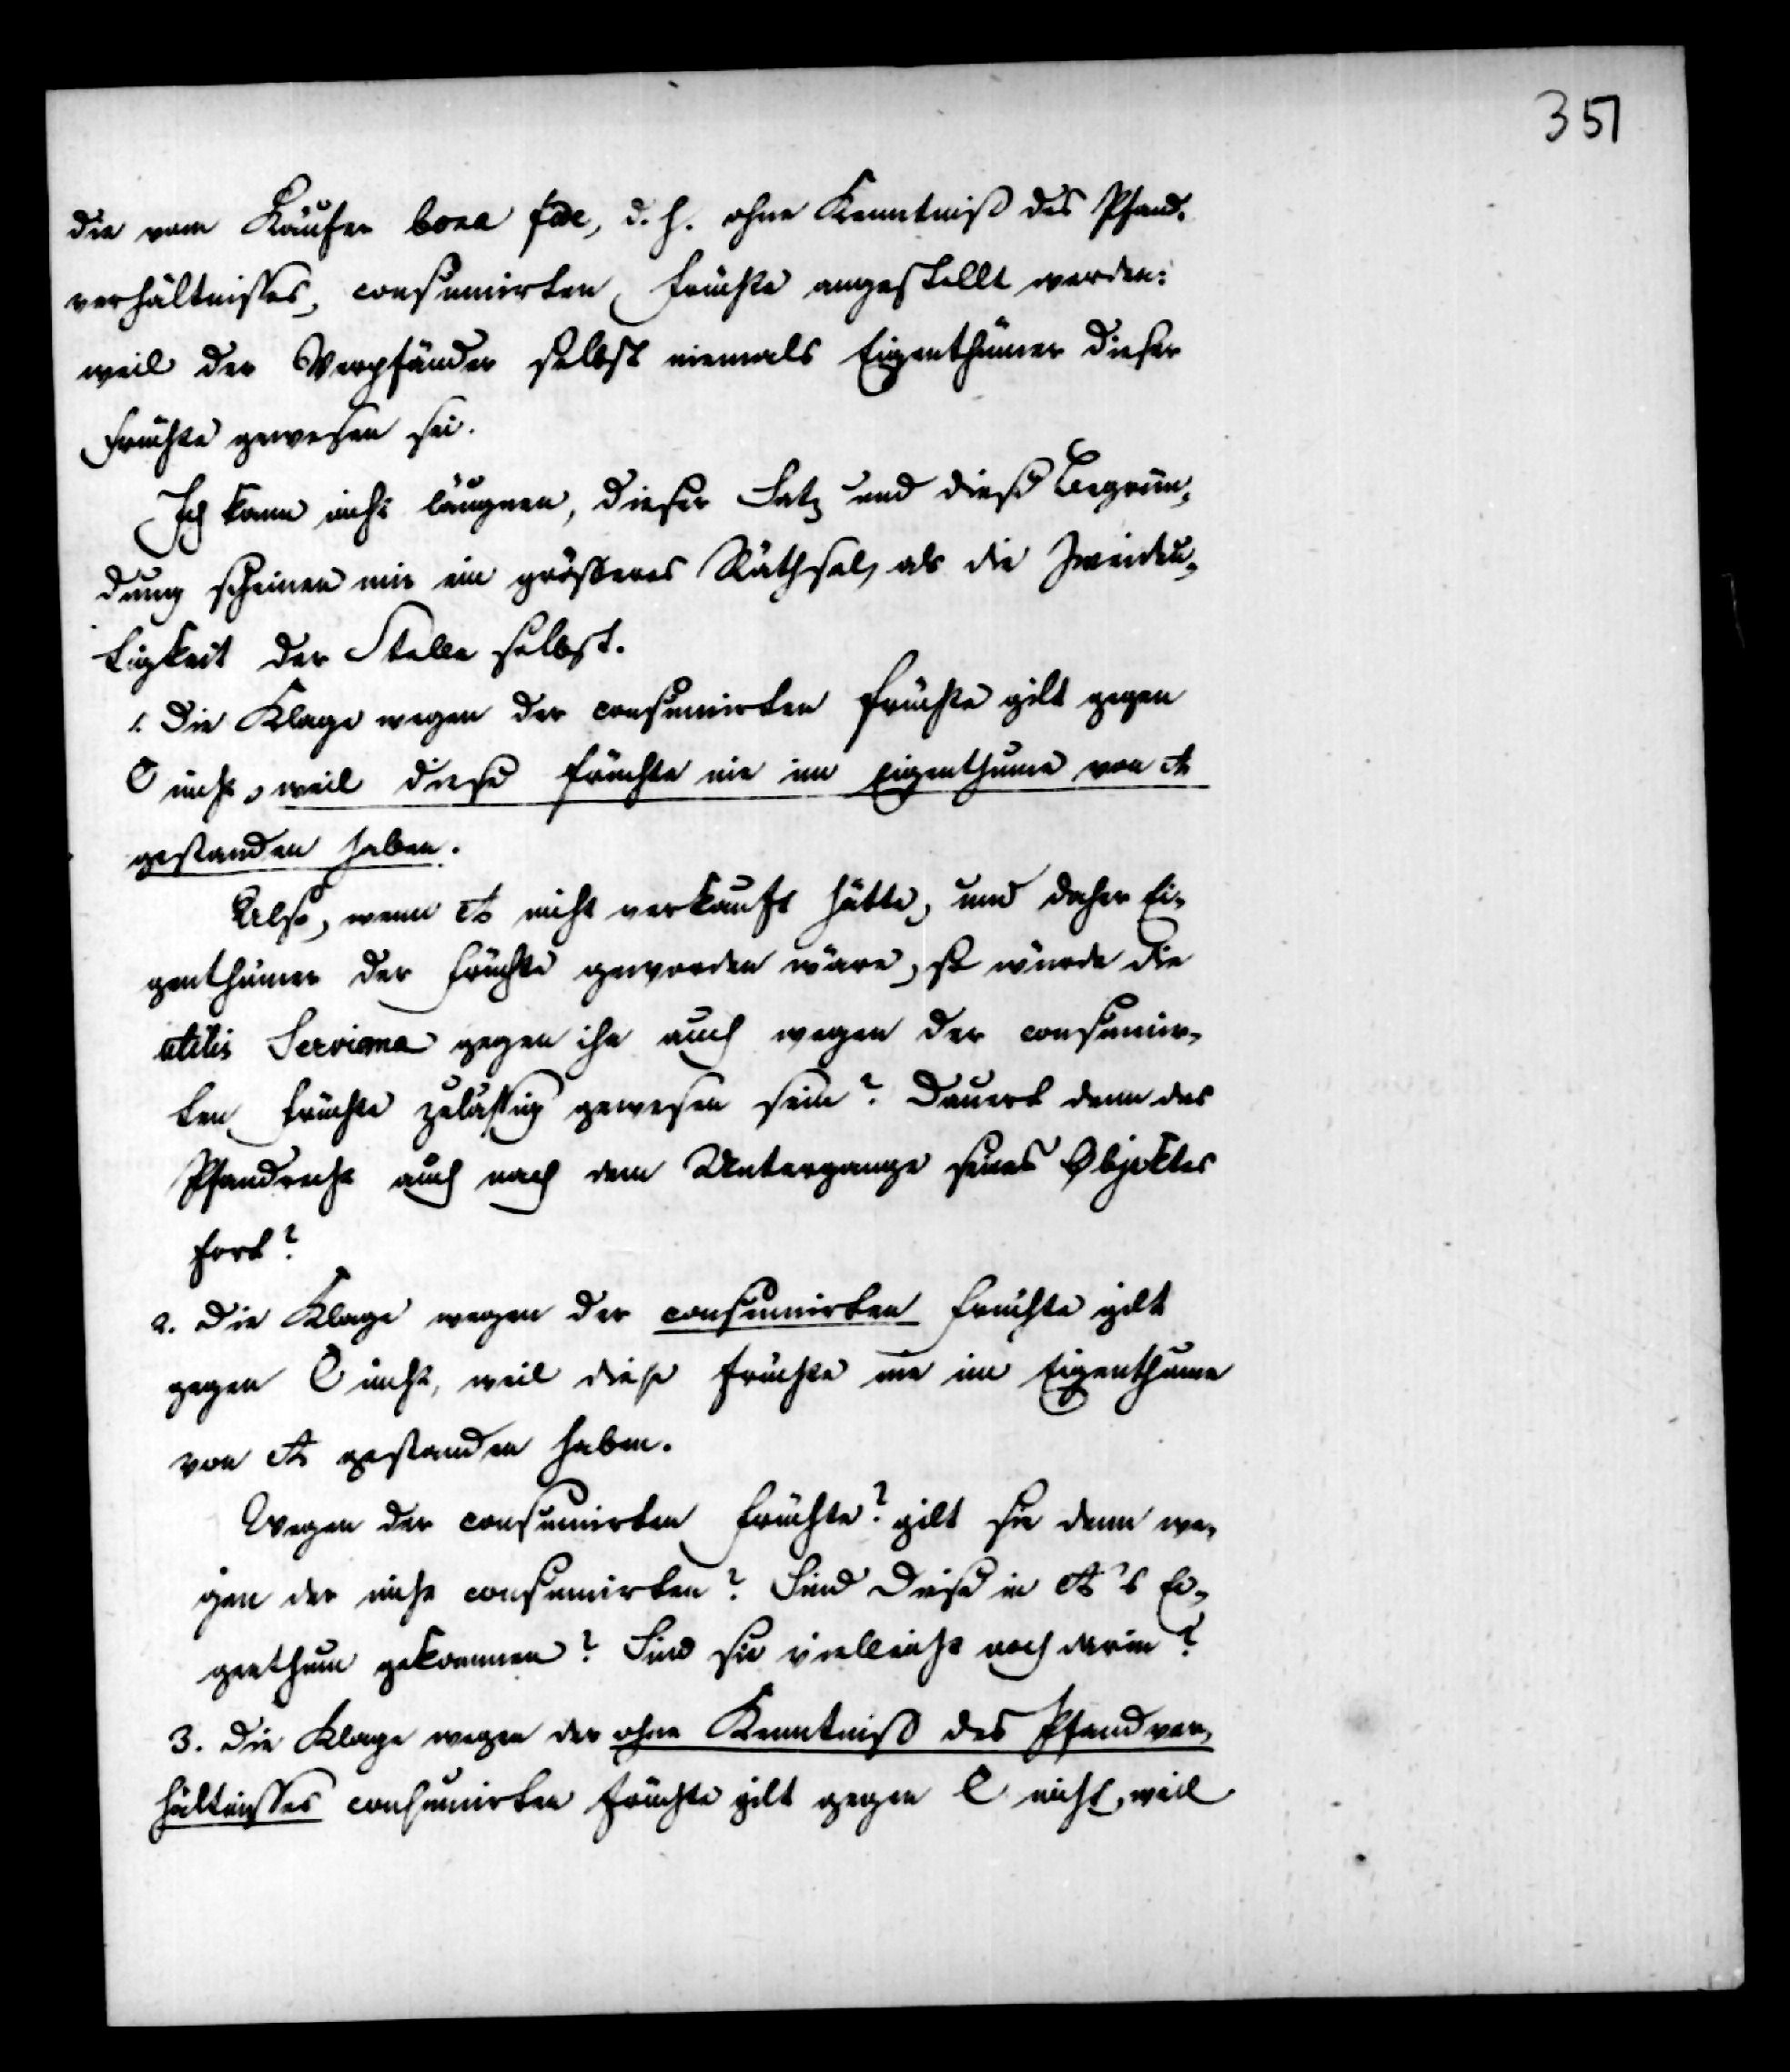 351
die vom Käufer bona fide, d. h. ohne Kenntniß des Pfand-
verhältnisses, consumirten Früchte angestellt werden:
weil der Verpfänder selbst niemals Eigenthümer dieser
Früchte gewesen sei.
Ich kann nicht läugnen, dieser Satz und diese Begrün-
dung scheinen mir ein größeres Räthsel, als die Zweideu-
tigkeit der Stelle selbst.
1. Die Klage wegen der consumirten Früchte gilt gegen
C nicht, weil diese Früchte nie im Eigenthume von A
gestanden haben.
Also, wenn A nicht verkauft hätte, und daher Ei-
genthümer der Früchte geworden wäre, so würde die
utilis Serviana gegen ihn auch wegen der consumir-
ten Früchte zulässig gewesen sein? Dauert denn das
Pfandrecht auch nach dem Untergange seines Objektes
fort?
2. Die Klage wegen der consumirten Früchte gilt
gegen C nicht, weil diese Früchte nie im Eigenthume
von A gestanden haben.
Wegen der consumirten Früchte? gilt sie denn we-
gen der nicht consumirten? Sind diese in A's Ei-
genthum gekommen? Sind sie vielleicht noch darin?
3. Die Klage wegen der ohne Kenntniß des Pfandver-
hältnisses consumirten Früchte gilt gegen C nicht, weil